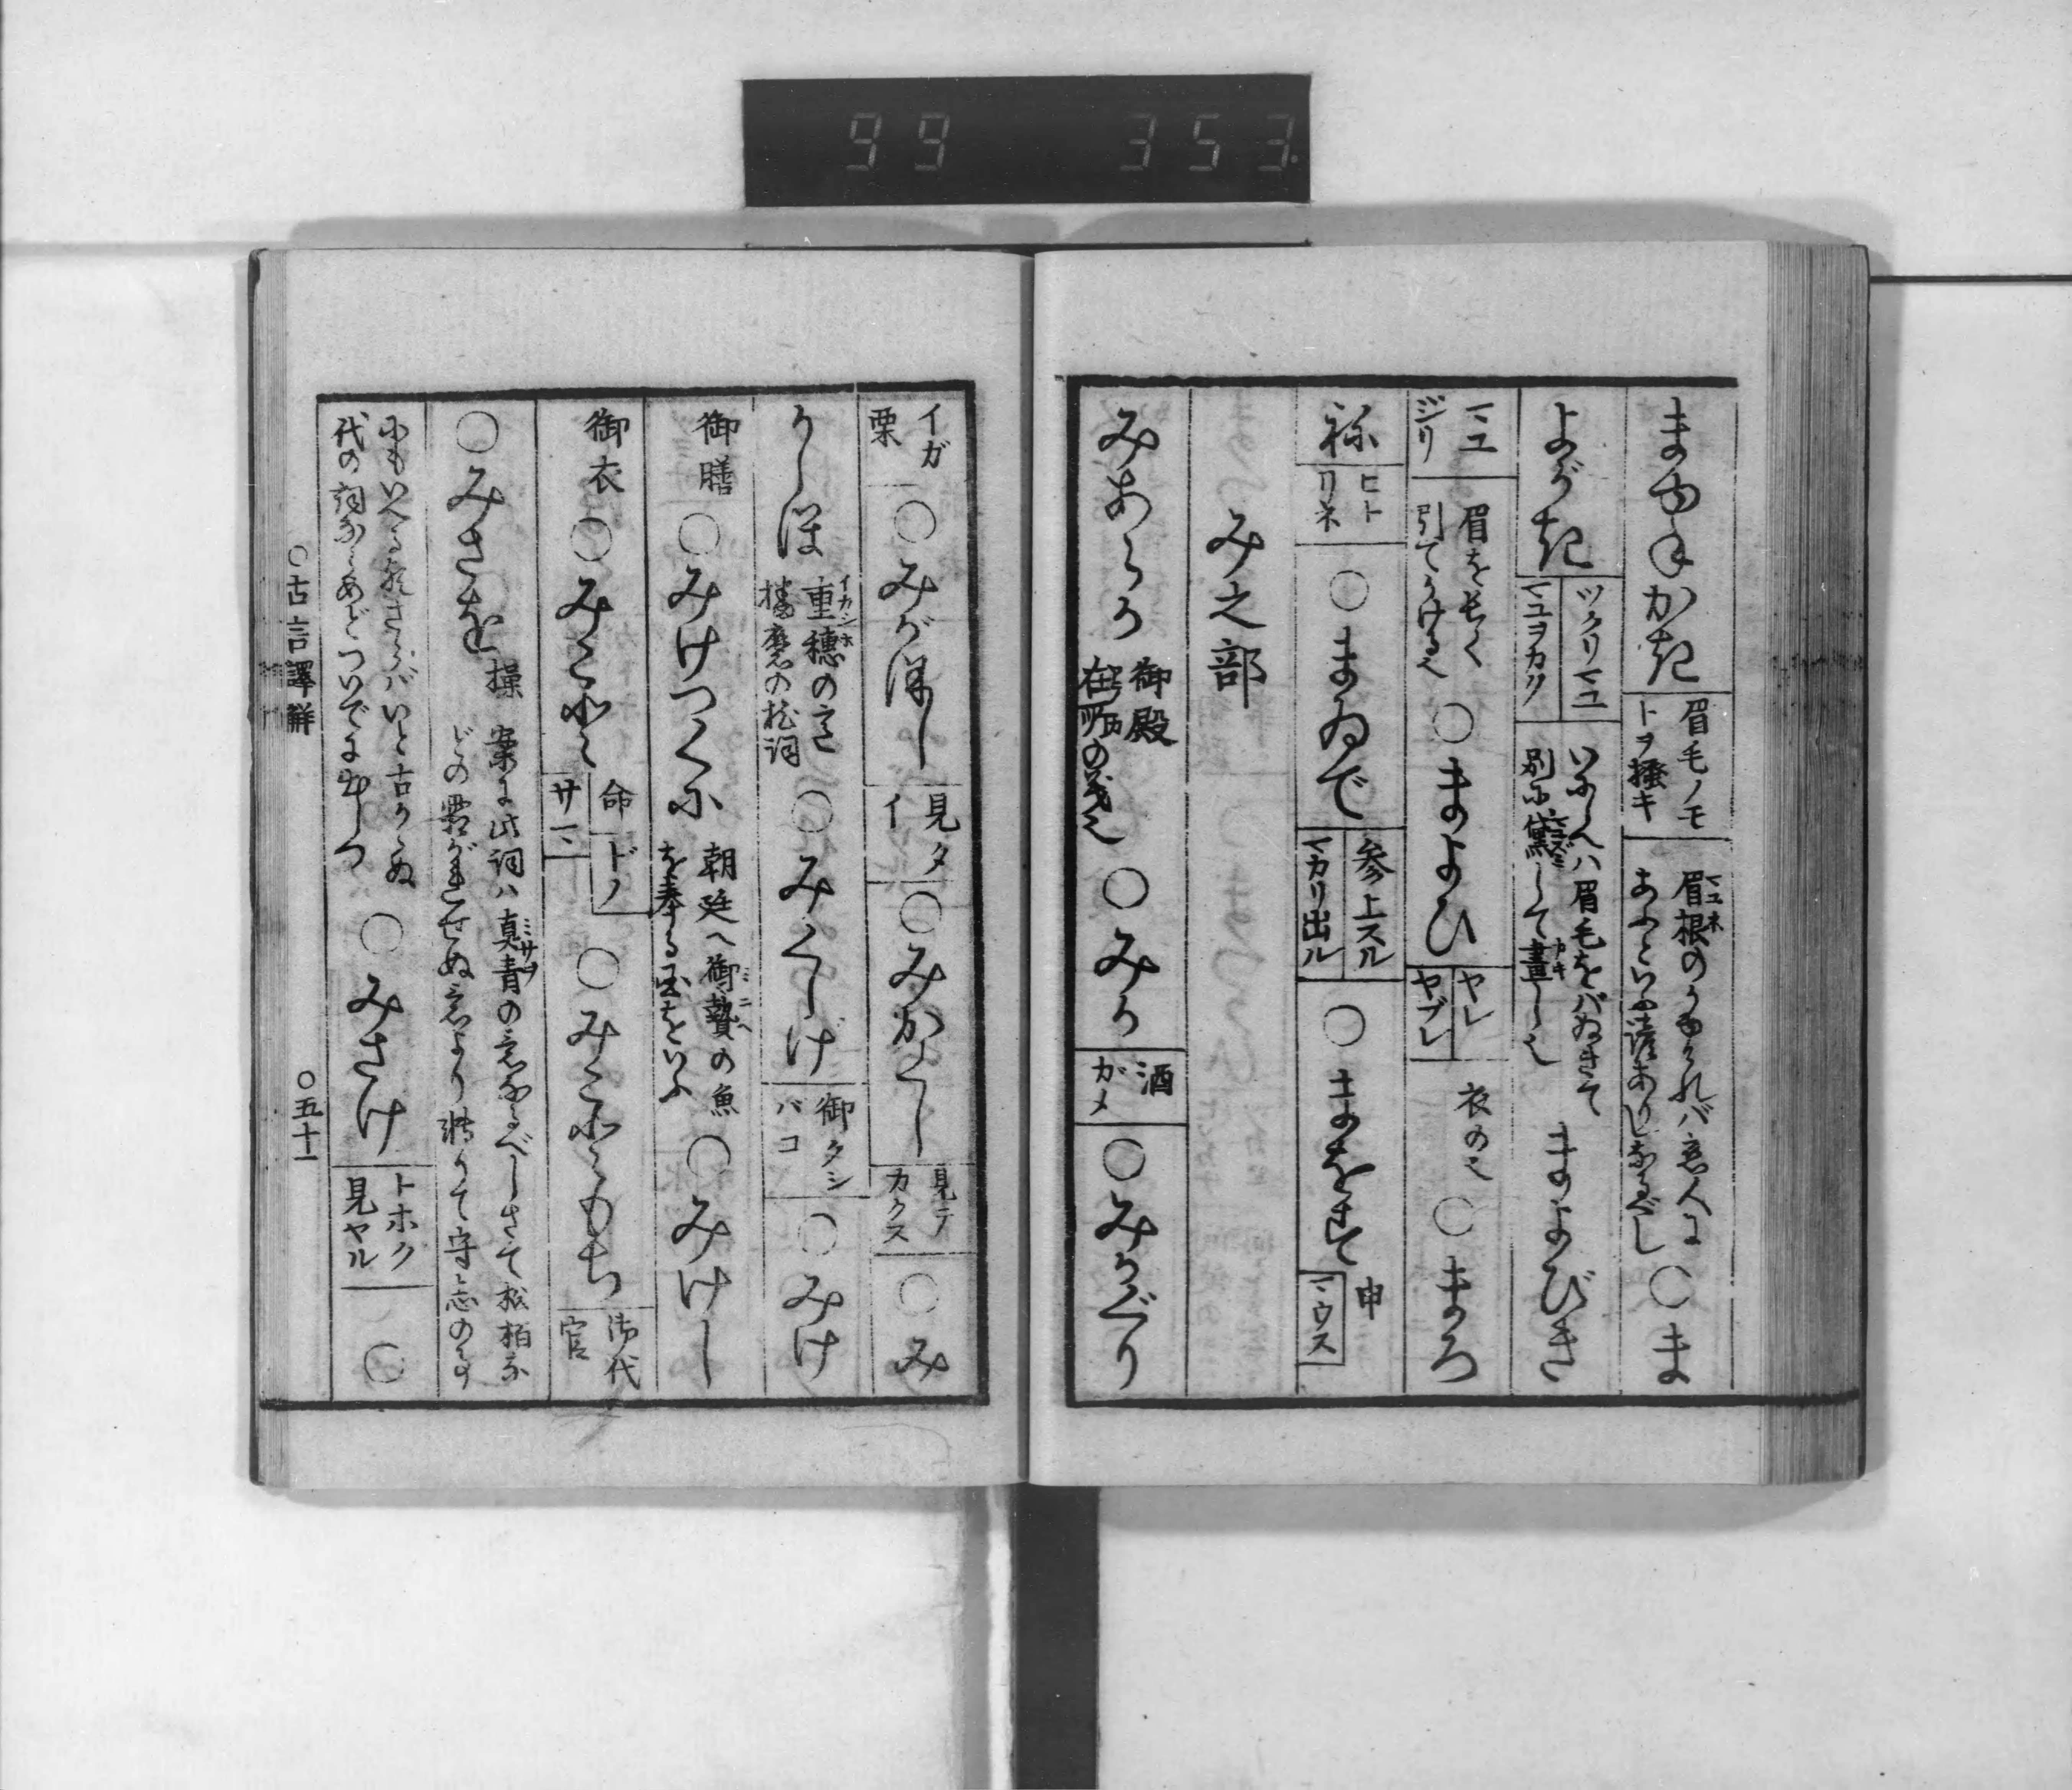 99 353
まゆねかき 眉毛ノモトヲ搔キ 眉根のかゆければ恋人にあふといふ諺ありしなるべし ○ま
よがき ツクリマユ マユヲカク いにしへハ眉毛をバぬきて別に黛して畫し也 まよびき
マユジリ 眉を長く引てかける也 ○まよひ ヤレ ヤブレ 衣の也 ○まろ
ね ヒトリネ ○まゐで 参上スル マカリ出ル ○まをす 申 マウス
み之部
みあらか 御殿 在所の義也 ○みか 酒ガメ ○みかぐり
イガ栗 ○みがほし 見タイ ○みかくし 見テカクス ○み
かしほ 重穂の意 播磨の枕詞 ○みくしげ 御クシバコ ○みけ
御膳 ○みけつくに 朝廷へ御贄の魚を奉る国をいふ ○みけし
御衣 ○みこと 命 ドノ サマ ○みこともち 御代官
○みさを 操 案に此詞ハ真青の意なるべしさて松柏などの霜がれせぬ意より轉りて守る志の事
にもいへるさらバいと古からぬ代の詞ながらあどついでに出しつ ○みさけ トホク見ヤル ○
○古言譯解 ○五十一